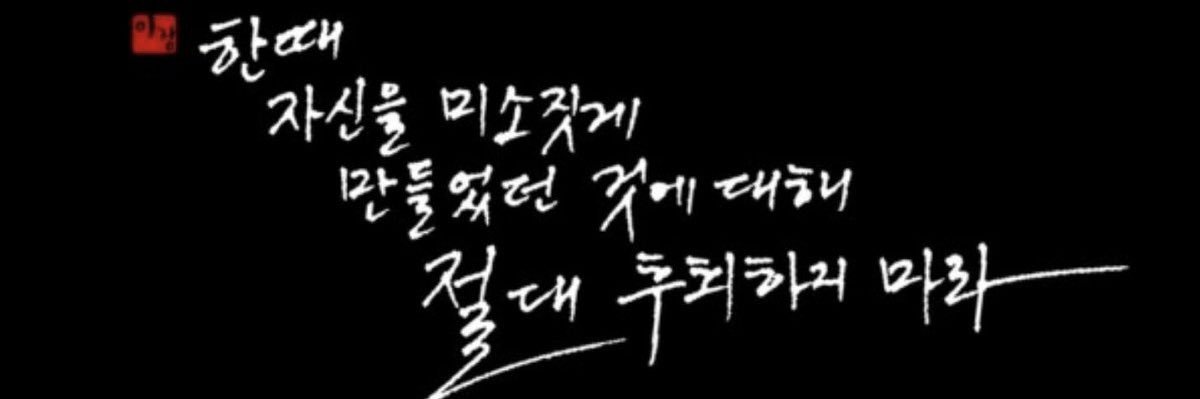 한때
자신을 미소짓게
만들었던 것에 대해
절대 후회하지 마라